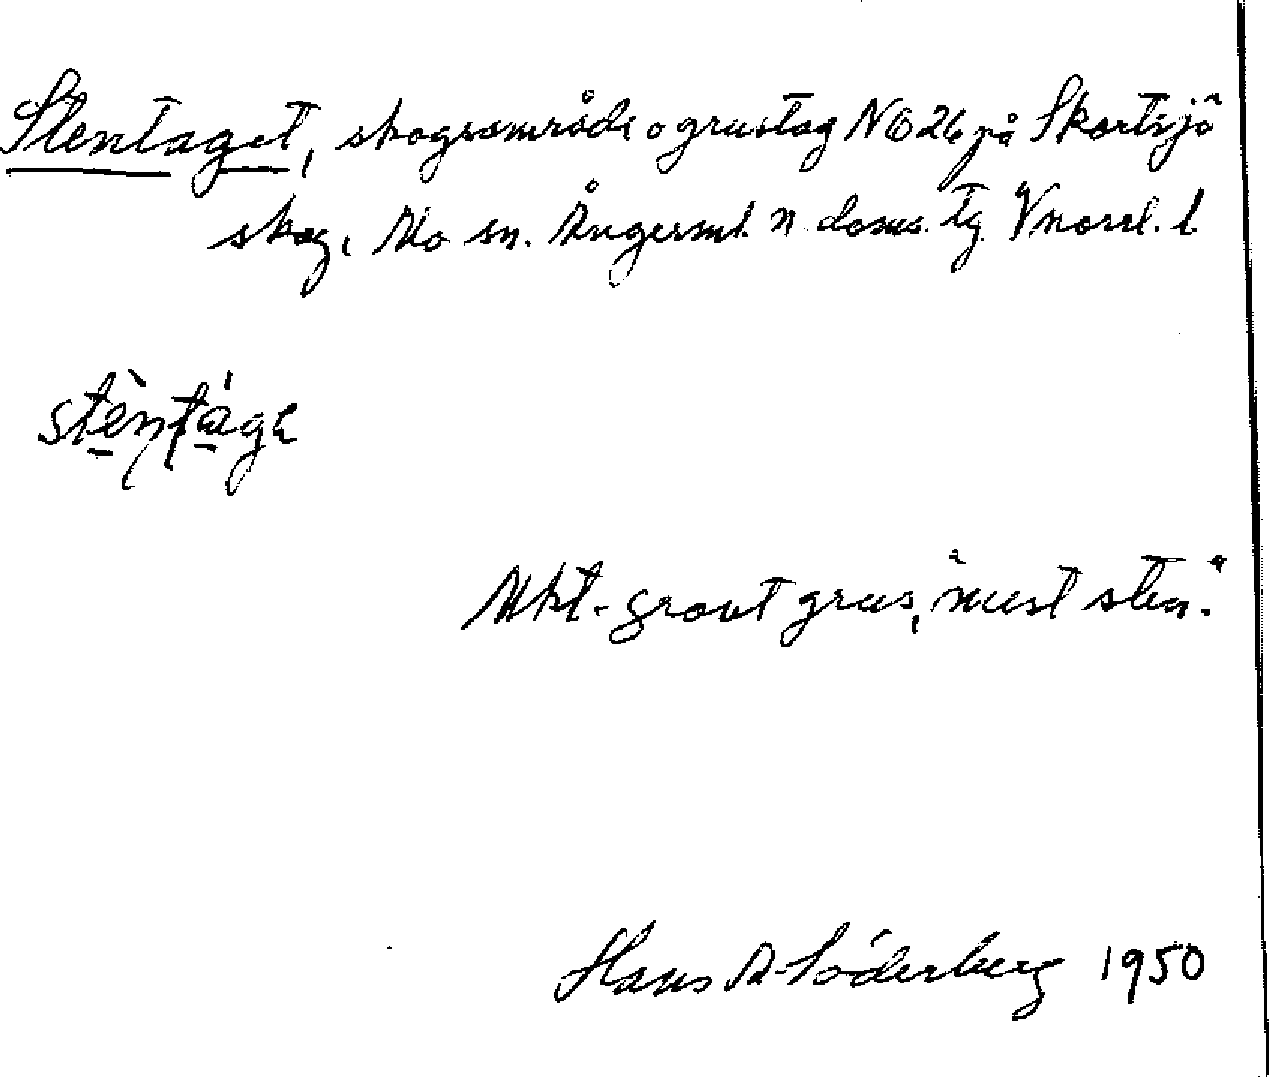 Stentaget, skogsområde o grustag NO 26 på Skortsjö
skog, Mo sn. Ångerml. n doms. tg Vnorrl. l
stèntágе
Mkt. grovt grus, "mest sten."
Hans A. Söderberg 1950